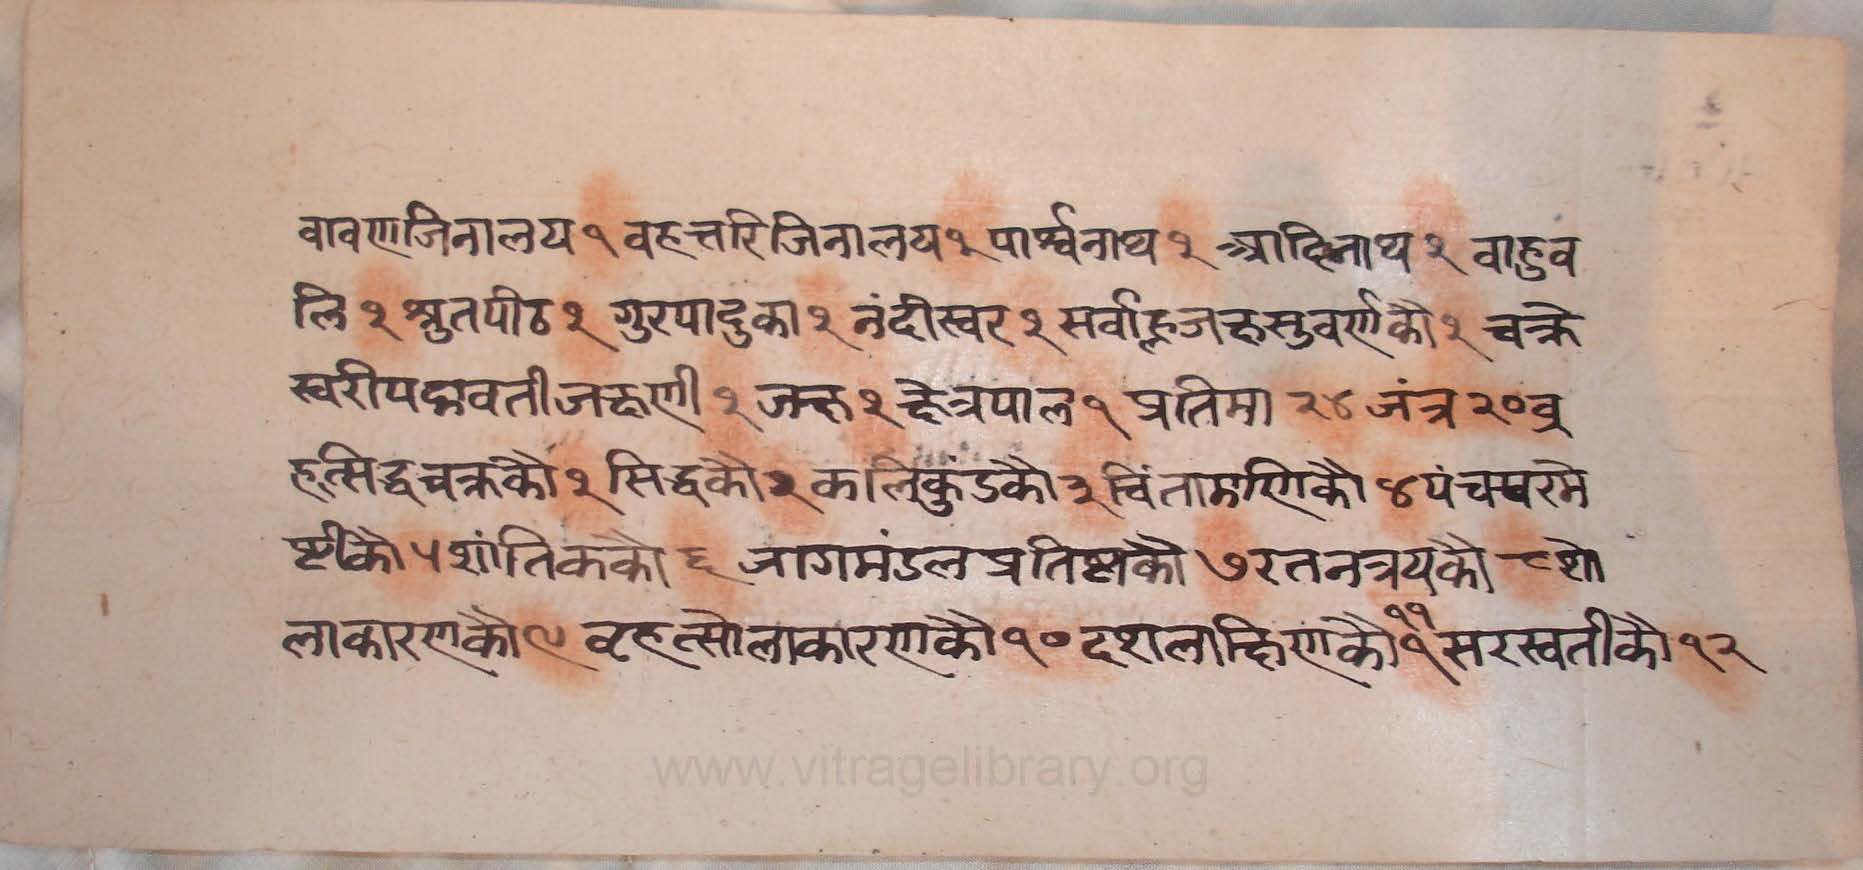 वावणजिनालय १ वहत्तरिजिनालय १ पार्श्वनाथ १ आदिनाथ १ वाहुव
लि १ श्रुतपीठ १ गुरपादुका १ नंदीस्वर १ सर्वाह्नजक्षसुवर्णकौ १ चक्रे
स्वरीपद्मावतीजक्षणी १ जक्ष १ क्षेत्रपाल १ प्रतिमा २४ जंत्र २० व्र
हत्सिद्धचक्रकौ १ सिद्धकौ २ कलिकुंडकौ ३ चिंतामणिकौ ४ पंचपरमे
ष्टीकौ ५ शांतिककौ ६ जागमंडल प्रतिष्टाकौ ७ रतनत्रयकौ ८ शो
लाकारणकौ ९ वृहत्सोलाकारणकौ १० दशलाक्षिणकौ ११ सरस्वतीकौ १२
www.vitragelibrary.org